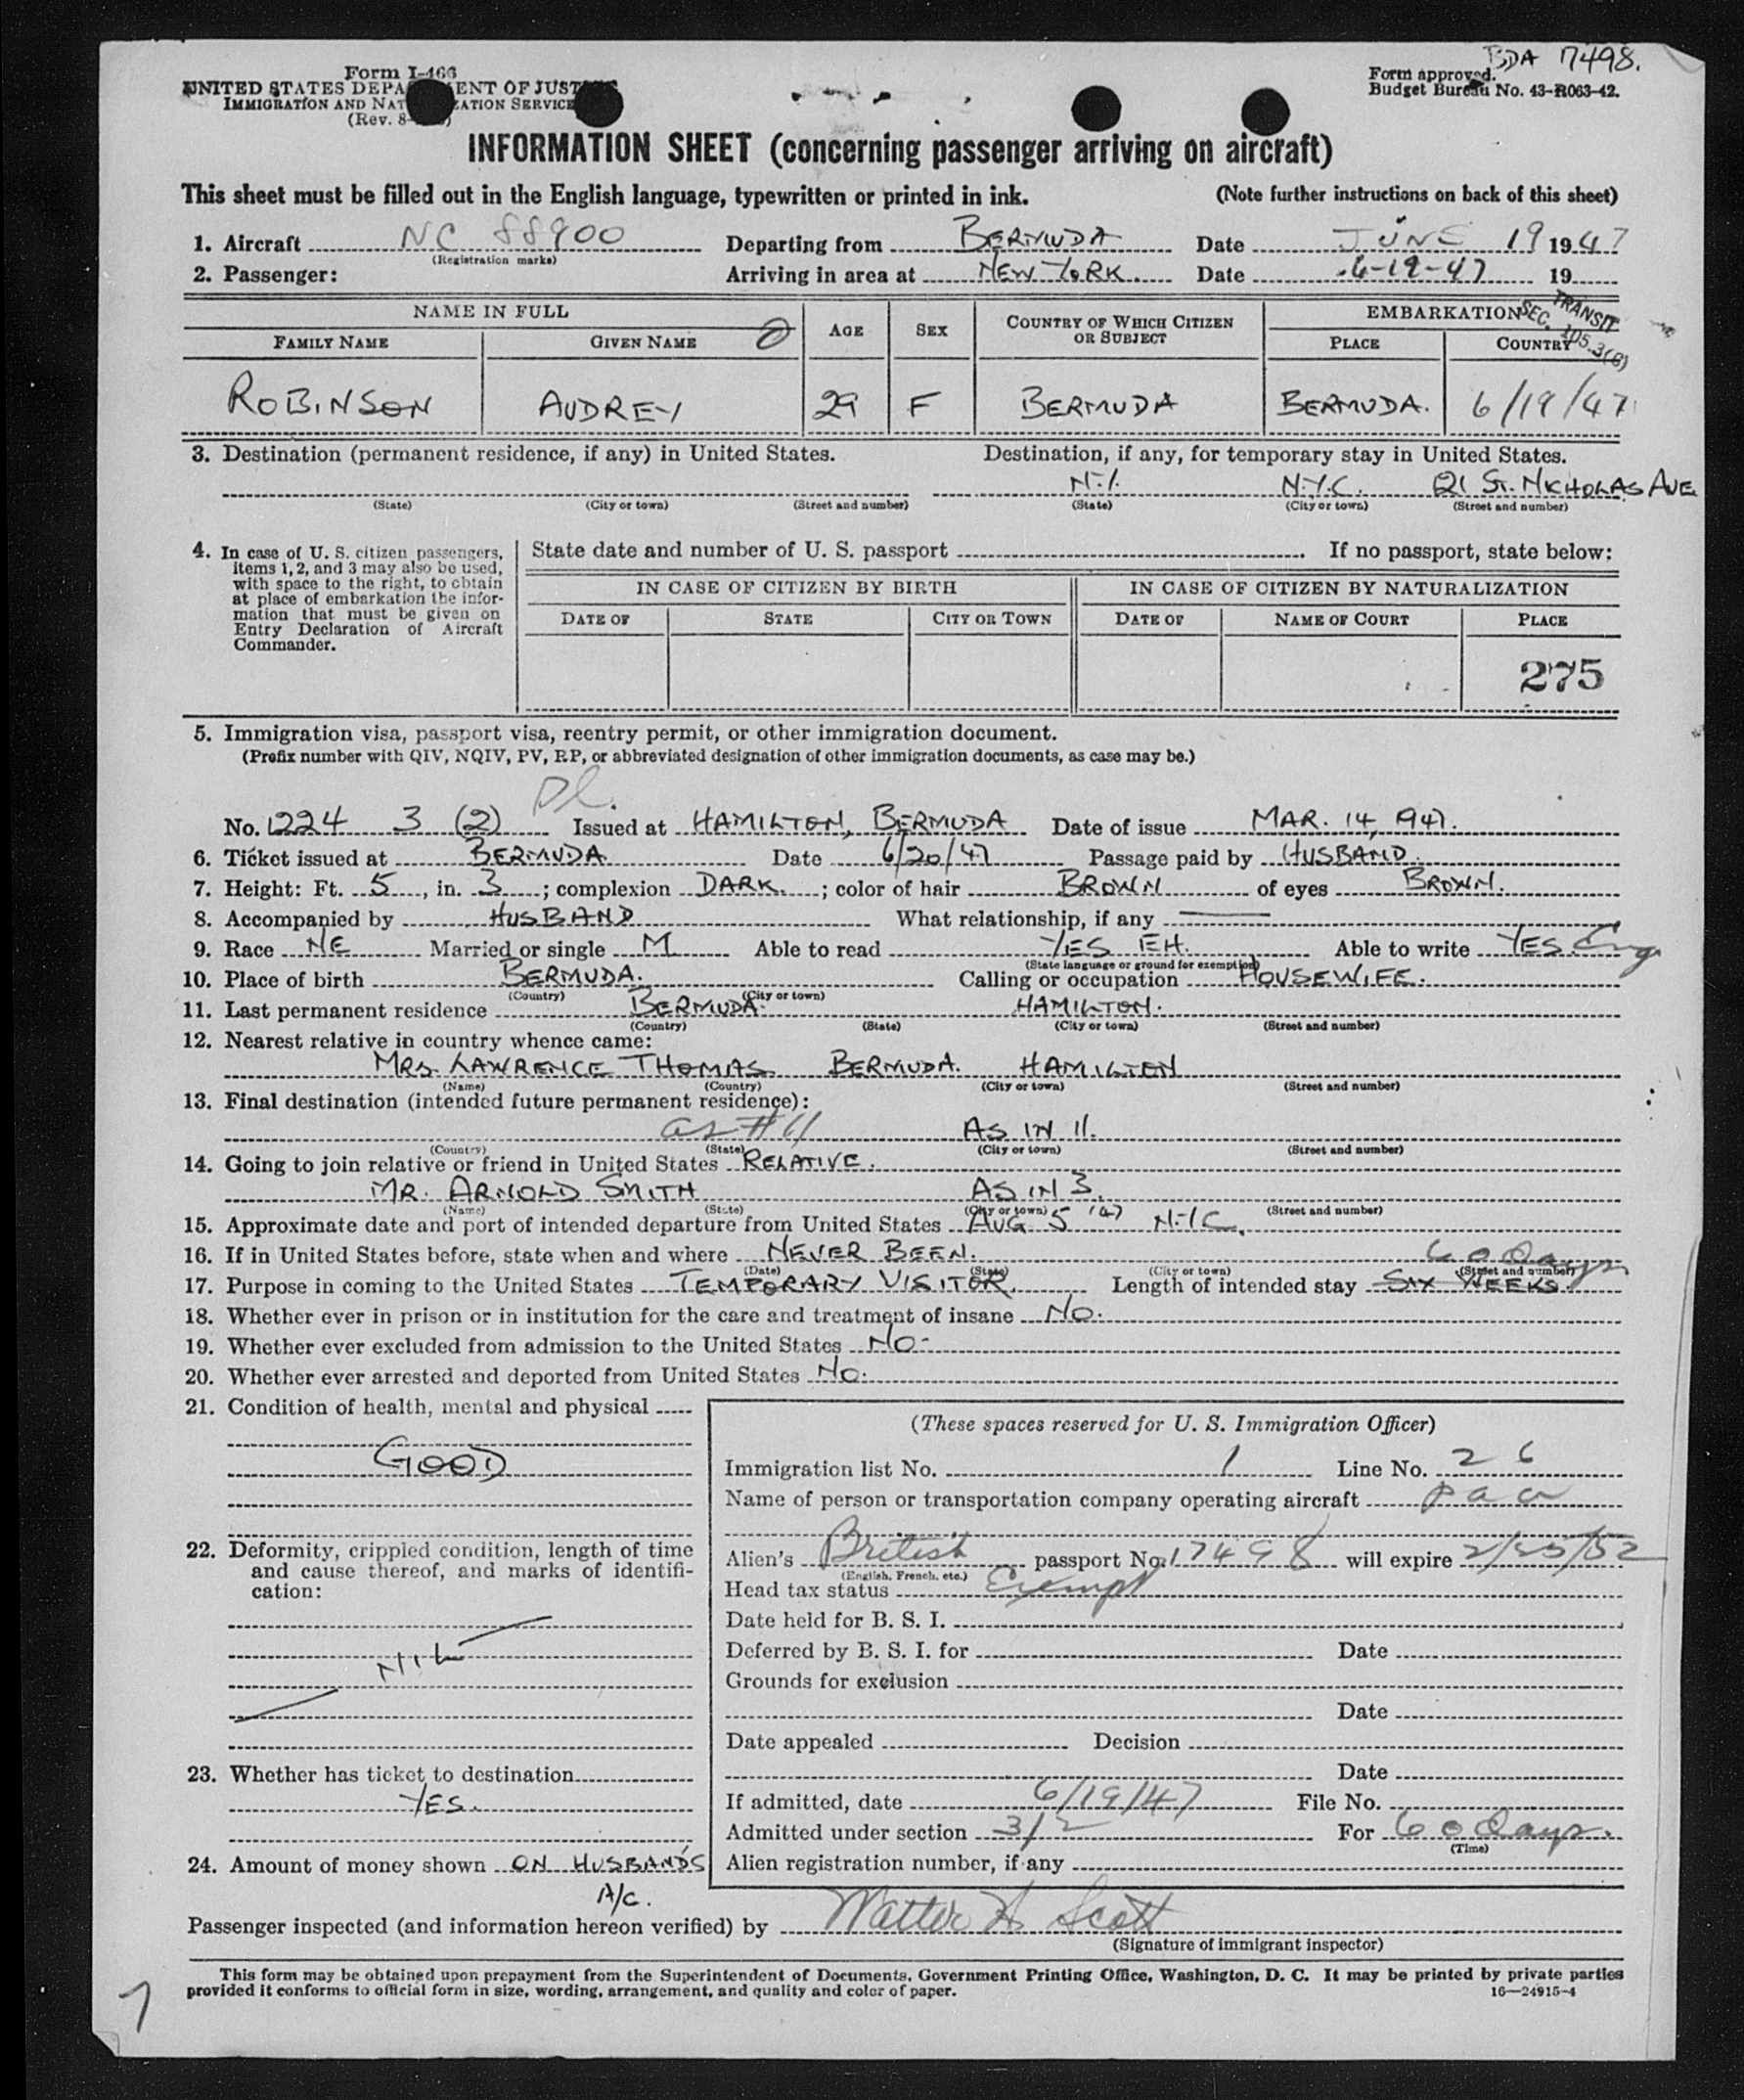 BDA 7498.
Form I-466
UNITED STATES DEPA ENT OF JUST
IMMIGRATION AND NAT ZATION SERVICE
(Rev. 8-
Form approved.
Budget Bureau No. 43-R063-42.
INFORMATION SHEET (concerning passenger arriving on aircraft)
This sheet must be filled out in the English language, typewritten or printed in ink. (Note further instructions on back of this sheet)
1. Aircraft NC 88900 Departing from BERMUDA Date JUNE 19 1947
(Registration marks)
2. Passenger: Arriving in area at NEW YORK. Date 6-19-47 19
NAME IN FULL AGE SEX COUNTRY OF WHICH CITIZEN OR SUBJECT EMBARKATION
TRANSIT
SEC. 105.3(B)
FAMILY NAME GIVEN NAME PLACE COUNTRY
ROBINSON AUDREY 29 F BERMUDA BERMUDA. 6/19/47
3. Destination (permanent residence, if any) in United States. Destination, if any, for temporary stay in United States.
N.Y. N.Y.C. ST. NICHOLAS AVE
(State) (City or town) (Street and number) (State) (City or town) (Street and number)
4. In case of U. S. citizen passengers, items 1, 2, and 3 may also be used, with space to the right, to obtain at place of embarkation the information that must be given on Entry Declaration of Aircraft Commander.
State date and number of U. S. passport If no passport, state below:
IN CASE OF CITIZEN BY BIRTH IN CASE OF CITIZEN BY NATURALIZATION
DATE OF STATE CITY OR TOWN DATE OF NAME OF COURT PLACE
275
5. Immigration visa, passport visa, reentry permit, or other immigration document.
(Prefix number with QIV, NQIV, PV, RP, or abbreviated designation of other immigration documents, as case may be.)
No. 1224 3 (2) Issued at HAMILTON, BERMUDA Date of issue MAR. 14, 1947.
6. Ticket issued at BERMUDA Date 6/20/47 Passage paid by HUSBAND.
7. Height: Ft. 5, in. 3; complexion DARK.; color of hair BROWN of eyes BROWN.
8. Accompanied by HUSBAND What relationship, if any
9. Race NE Married or single M Able to read YES EH. Able to write YES. Eng
(State language or ground for exemption)
10. Place of birth BERMUDA. Calling or occupation HOUSEWIFE.
(Country) (City or town)
11. Last permanent residence BERMUDA. HAMILTON.
(Country) (State) (City or town) (Street and number)
12. Nearest relative in country whence came:
MRS. LAWRENCE THOMAS BERMUDA. HAMILTON
(Name) (Country) (City or town) (Street and number)
13. Final destination (intended future permanent residence):
as #11 AS IN 11.
(Country) (State) (City or town) (Street and number)
14. Going to join relative or friend in United States RELATIVE.
MR. ARNOLD SMITH AS IN 3.
(Name) (State) (City or town) (Street and number)
15. Approximate date and port of intended departure from United States AUG 5 '47 N.Y.C.
16. If in United States before, state when and where NEVER BEEN.
(Date) (State) (City or town) (Street and number)
60 Days
17. Purpose in coming to the United States TEMPORARY VISITOR. Length of intended stay SIX WEEKS.
18. Whether ever in prison or in institution for the care and treatment of insane NO.
19. Whether ever excluded from admission to the United States NO.
20. Whether ever arrested and deported from United States NO.
21. Condition of health, mental and physical
GOOD
22. Deformity, crippled condition, length of time and cause thereof, and marks of identification:
NIL
23. Whether has ticket to destination
YES.
24. Amount of money shown ON HUSBAND'S
A/C.
(These spaces reserved for U. S. Immigration Officer)
Immigration list No. 1 Line No. 26
Name of person or transportation company operating aircraft paa
Alien's British passport No. 17498 will expire
(English, French, etc.)
Head tax status Exempt
Date held for B. S. I.
Deferred by B. S. I. for Date
Grounds for exclusion
Date
Date appealed Decision
Date
If admitted, date 6/19/47 File No.
Admitted under section 3/2 For 60 Days.
(Time)
Alien registration number, if any
Passenger inspected (and information hereon verified) by Walter H Scott
(Signature of immigrant inspector)
This form may be obtained upon prepayment from the Superintendent of Documents, Government Printing Office, Washington, D. C. It may be printed by private parties
provided it conforms to official form in size, wording, arrangement, and quality and color of paper. 16—24915-4